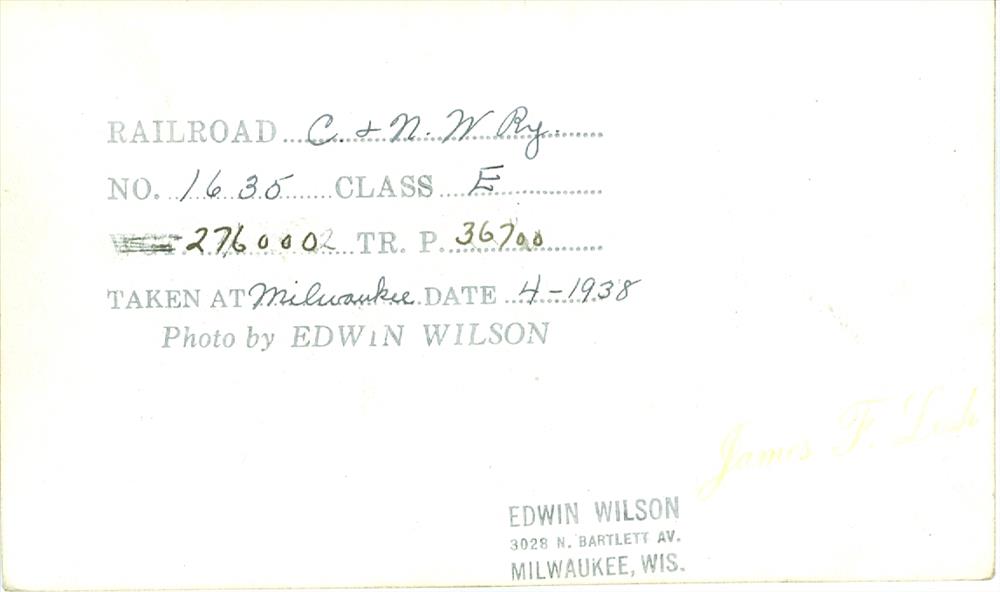 RAILROAD C. & N. W Ry.
NO. 1635 CLASS E
276000 TR. P. 36700
TAKEN AT Milwaukee DATE 4-1938
Photo by EDWIN WILSON
James F.
EDWIN WILSON
3028 N. BARTLETT AV.
MILWAUKEE, WIS.